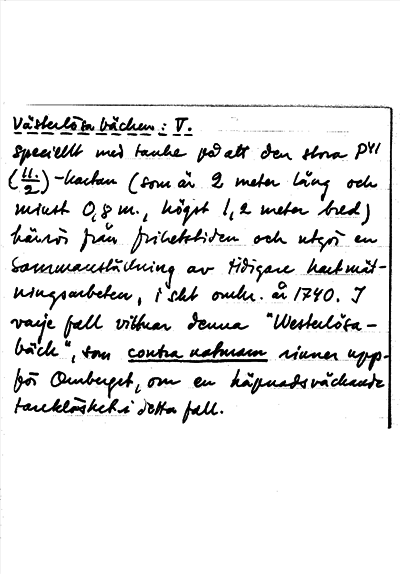 Västerlösabäcken: V.
speciellt med tanke på att den stora P41
(11/2)-kartan (som är 2 meter lång och
minst 0,8 m., högst 1,2 meter bred)
härrör från frihetstiden och utgör en
sammanställning av tidigare kartmät-
ningsarbeten, i skt omkr. år 1740. I
varje fall vittnar denna "Westerlösa-
bäck", som contra naturam rinner upp-
för Omberget, om en häpnadsväckande
tanklöshet i detta fall.